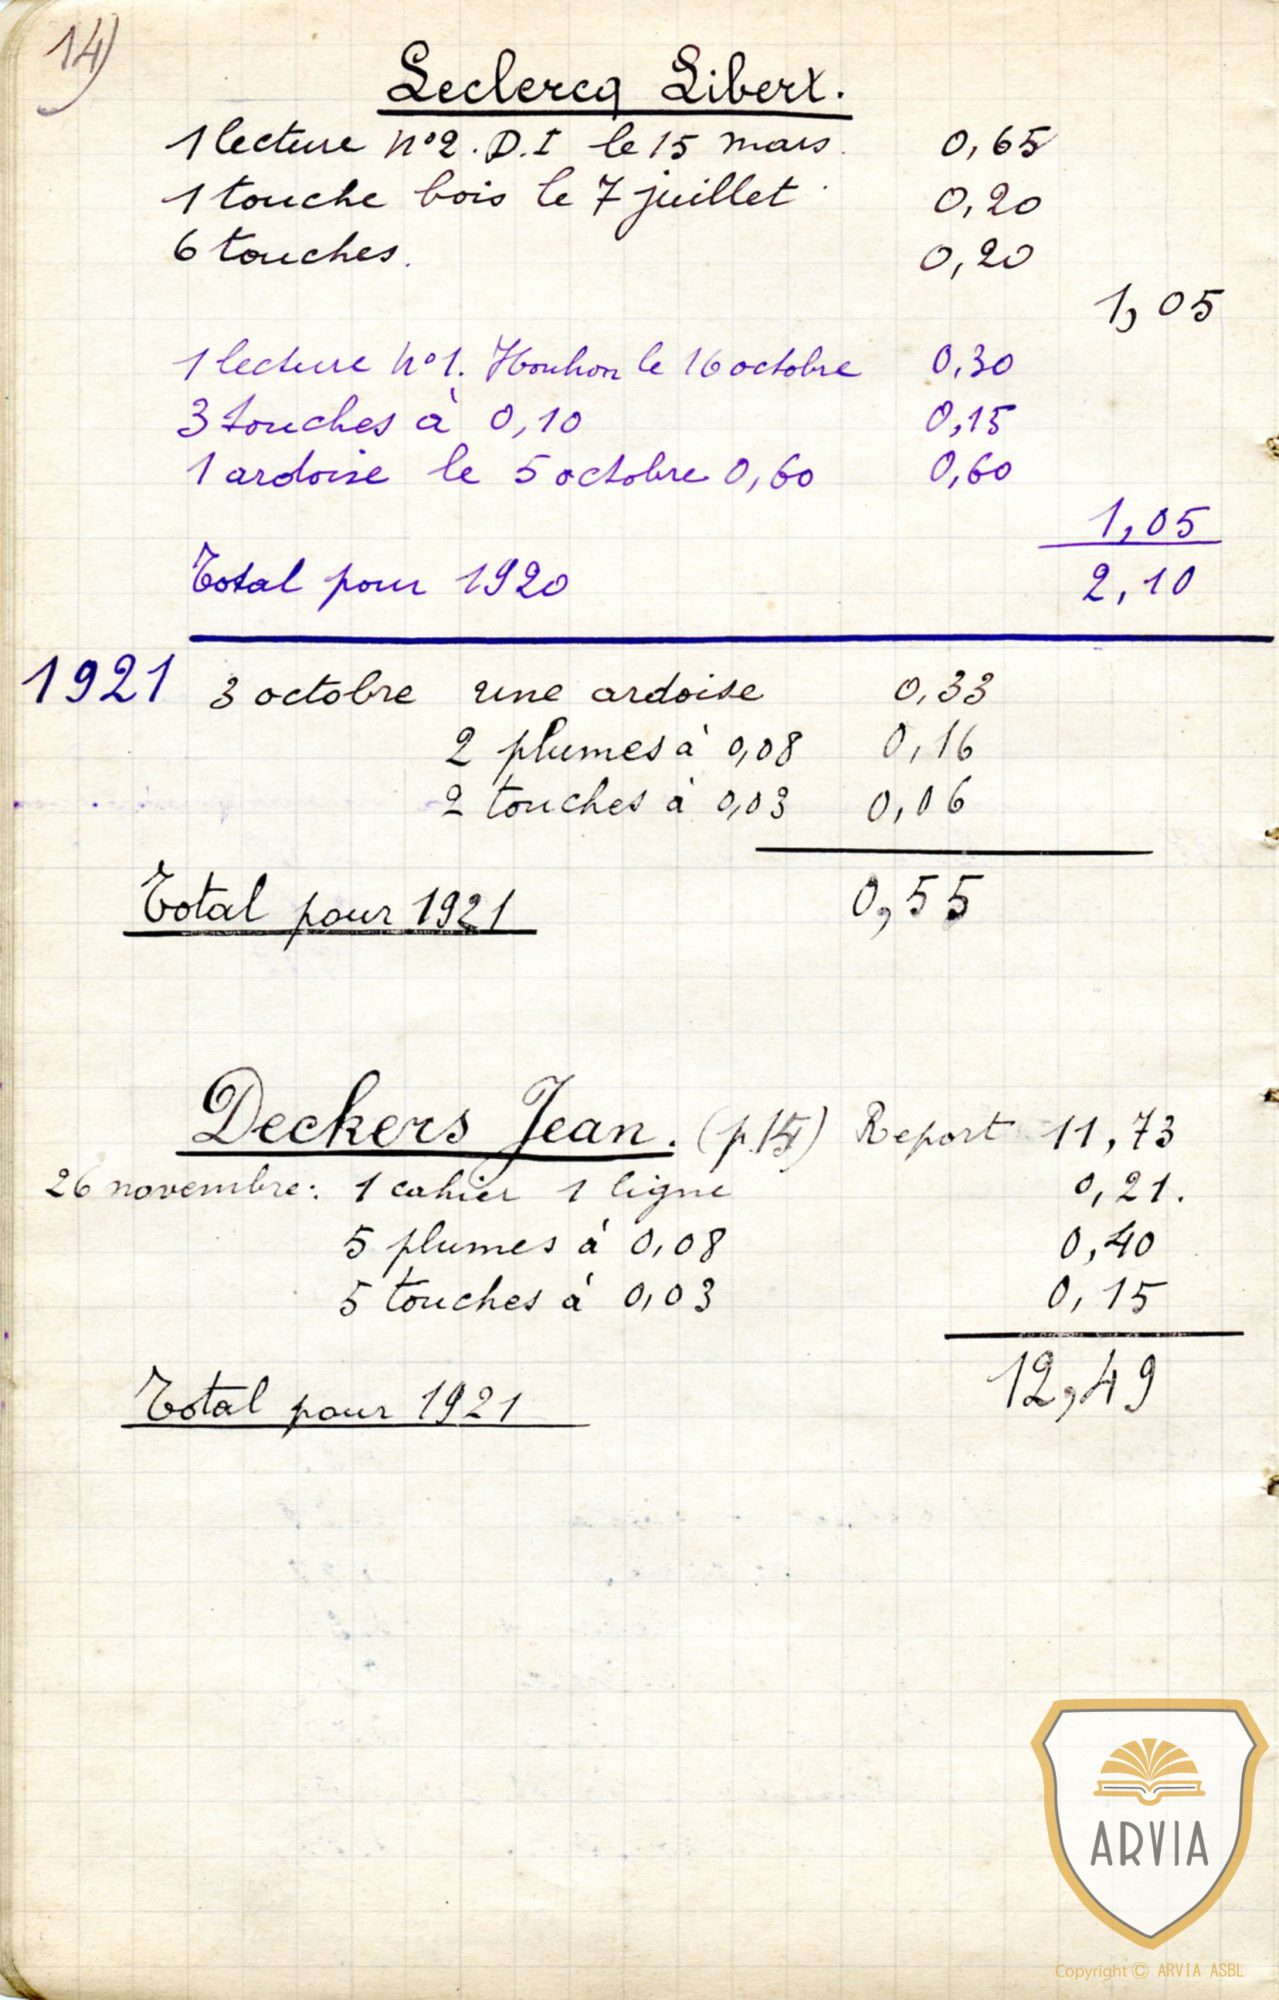 14)
Leclercq Libert.
1 lecture n°2. D.I le 15 mars. 0,65
1 touche bois le 7 juillet 0,20
6 touches. 0,20
1,05
1 lecture n°1. Houhon le 16 octobre 0,30
3 touches à 0,10 0,15
1 ardoise le 5 octobre 0,60 0,60
1,05
Total pour 1920 2,10
1921 3 octobre une ardoise 0,33
2 plumes à 0,08 0,16
2 touches à 0,03 0,06
Total pour 1921 0,55
Deckers Jean. (p. 15) Report 11,73
26 novembre: 1 cahier 1 ligne 0,21.
5 plumes à 0,08 0,40
5 touches à 0,03 0,15
Total pour 1921 12,49
ARVIA
Copyright © ARVIA ASBL